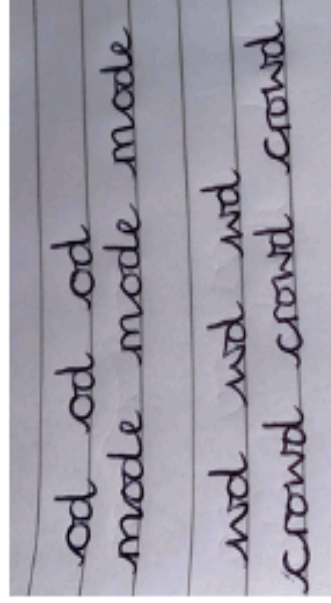 od od od
mode mode mode
wd wd wd
crowd crowd crowd